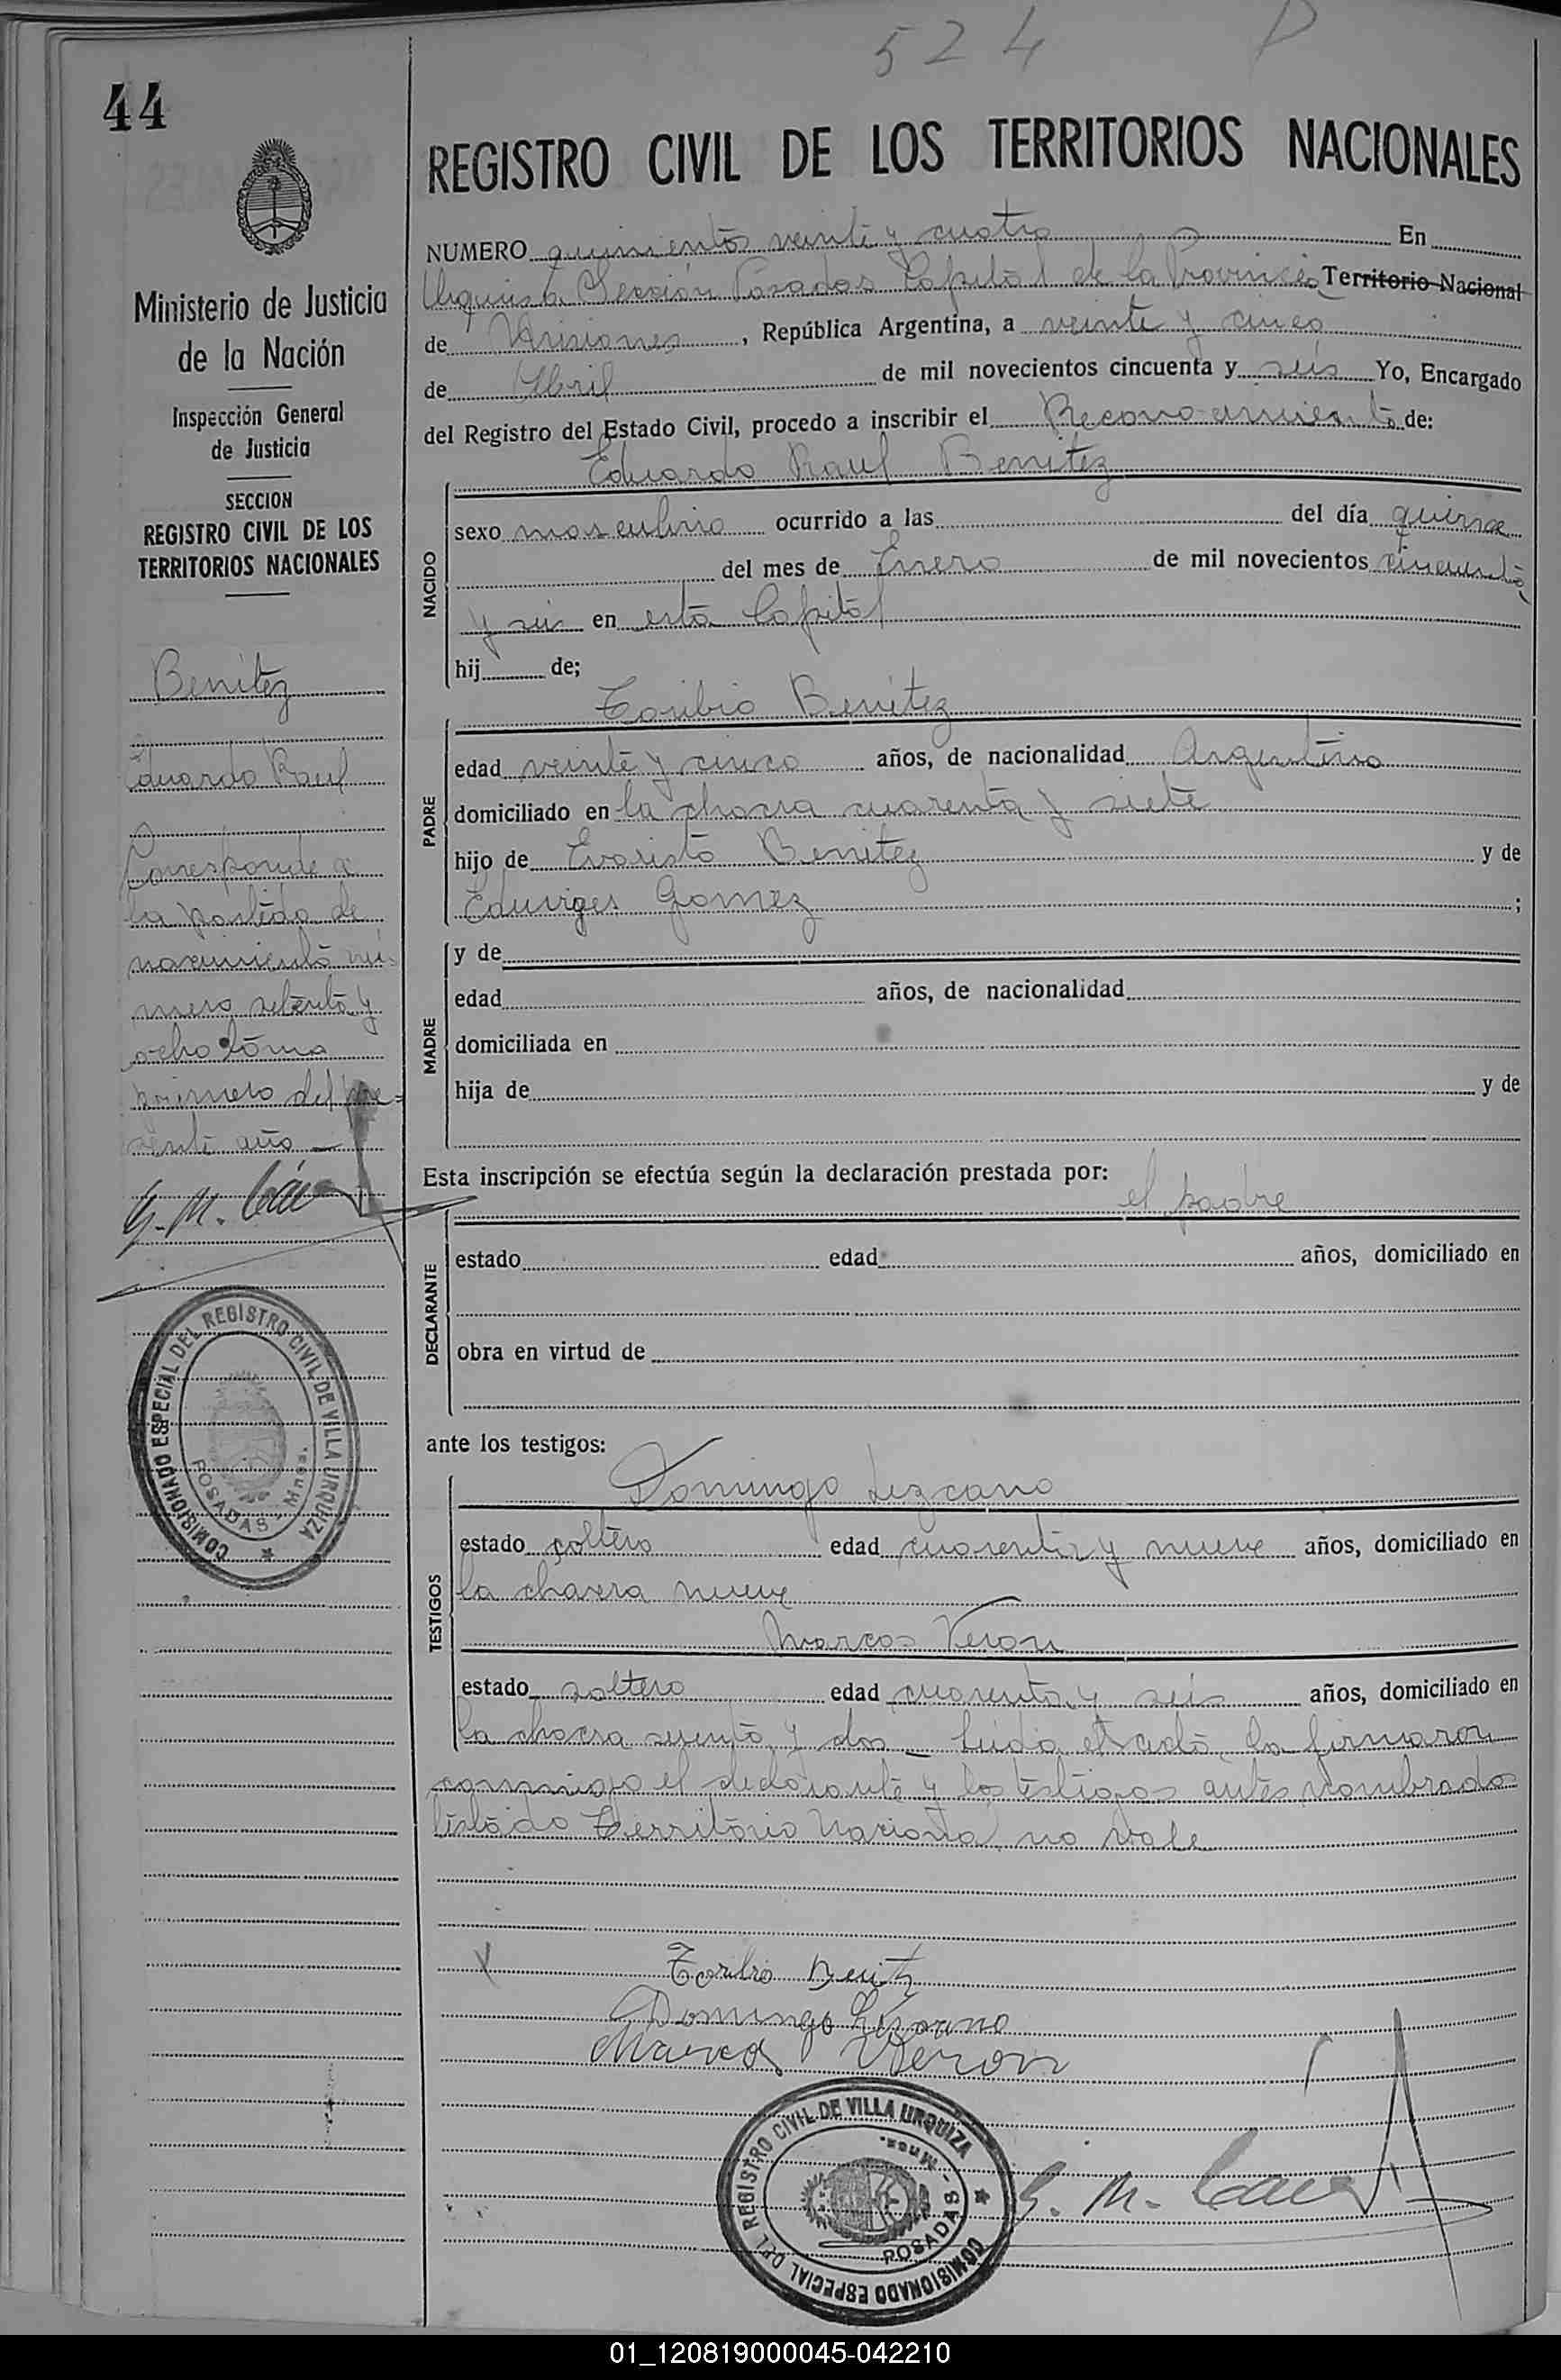 524
44
REGISTRO CIVIL DE LOS TERRITORIOS NACIONALES
Ministerio de Justicia
de la Nación
Inspección General
de Justicia
SECCION
REGISTRO CIVIL DE LOS
TERRITORIOS NACIONALES
Benitez
Eduardo Raul
Corresponde a
la partida de
nacimiento nú-
mero setenta y
ocho tomo
primero del pre-
sente año
COMISIONADO ESPECIAL DEL REGISTRO CIVIL DE VILLA URQUIZA
POSADAS - Mnes.
NUMERO quinientos veinte y cuatro En
Urquiza Sección Posadas Capital de la Provincia Territorio Nacional
de Misiones, República Argentina, a veinte y cinco
de Abril de mil novecientos cincuenta y seis Yo, Encargado
del Registro del Estado Civil, procedo a inscribir el Reconocimiento de:
Eduardo Raul Benitez
NACIDO
sexo masculino ocurrido a las del día quince
del mes de Enero de mil novecientos cincuenta
y seis en esta Capital
hij de;
Toribio Benitez
PADRE
edad veinte y cinco años, de nacionalidad Argentino
domiciliado en la chacra cuarenta y siete
hijo de Evaristo Benitez y de
Eduviges Gomez ;
MADRE
y de
edad años, de nacionalidad
domiciliada en
hija de y de
Esta inscripción se efectúa según la declaración prestada por:
el padre
DECLARANTE
estado edad años, domiciliado en
obra en virtud de
ante los testigos:
Domingo Lezcano
TESTIGOS
estado soltero edad cuarenta y nueve años, domiciliado en
la chacra nueve
Marcos Veron
estado soltero edad cuarenta y seis años, domiciliado en
la chacra y dos - Leida el acta la firmaron
conmigo el declarante y los testigos antes nombrados
Testado Territorio Nacional no vale
Toribio Benitz
Domingo Lezcano
Marcos Veron
COMISIONADO ESPECIAL DEL REGISTRO CIVIL DE VILLA URQUIZA
POSADAS - Mnes.
01_120819000045-042210